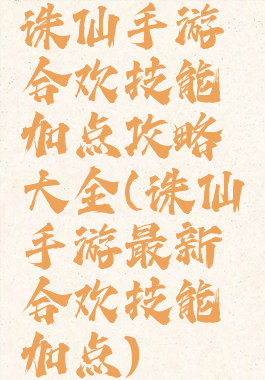 诛仙手游
合欢技能
加点攻略
大全(诛仙
手游最新
合欢技能
加点)